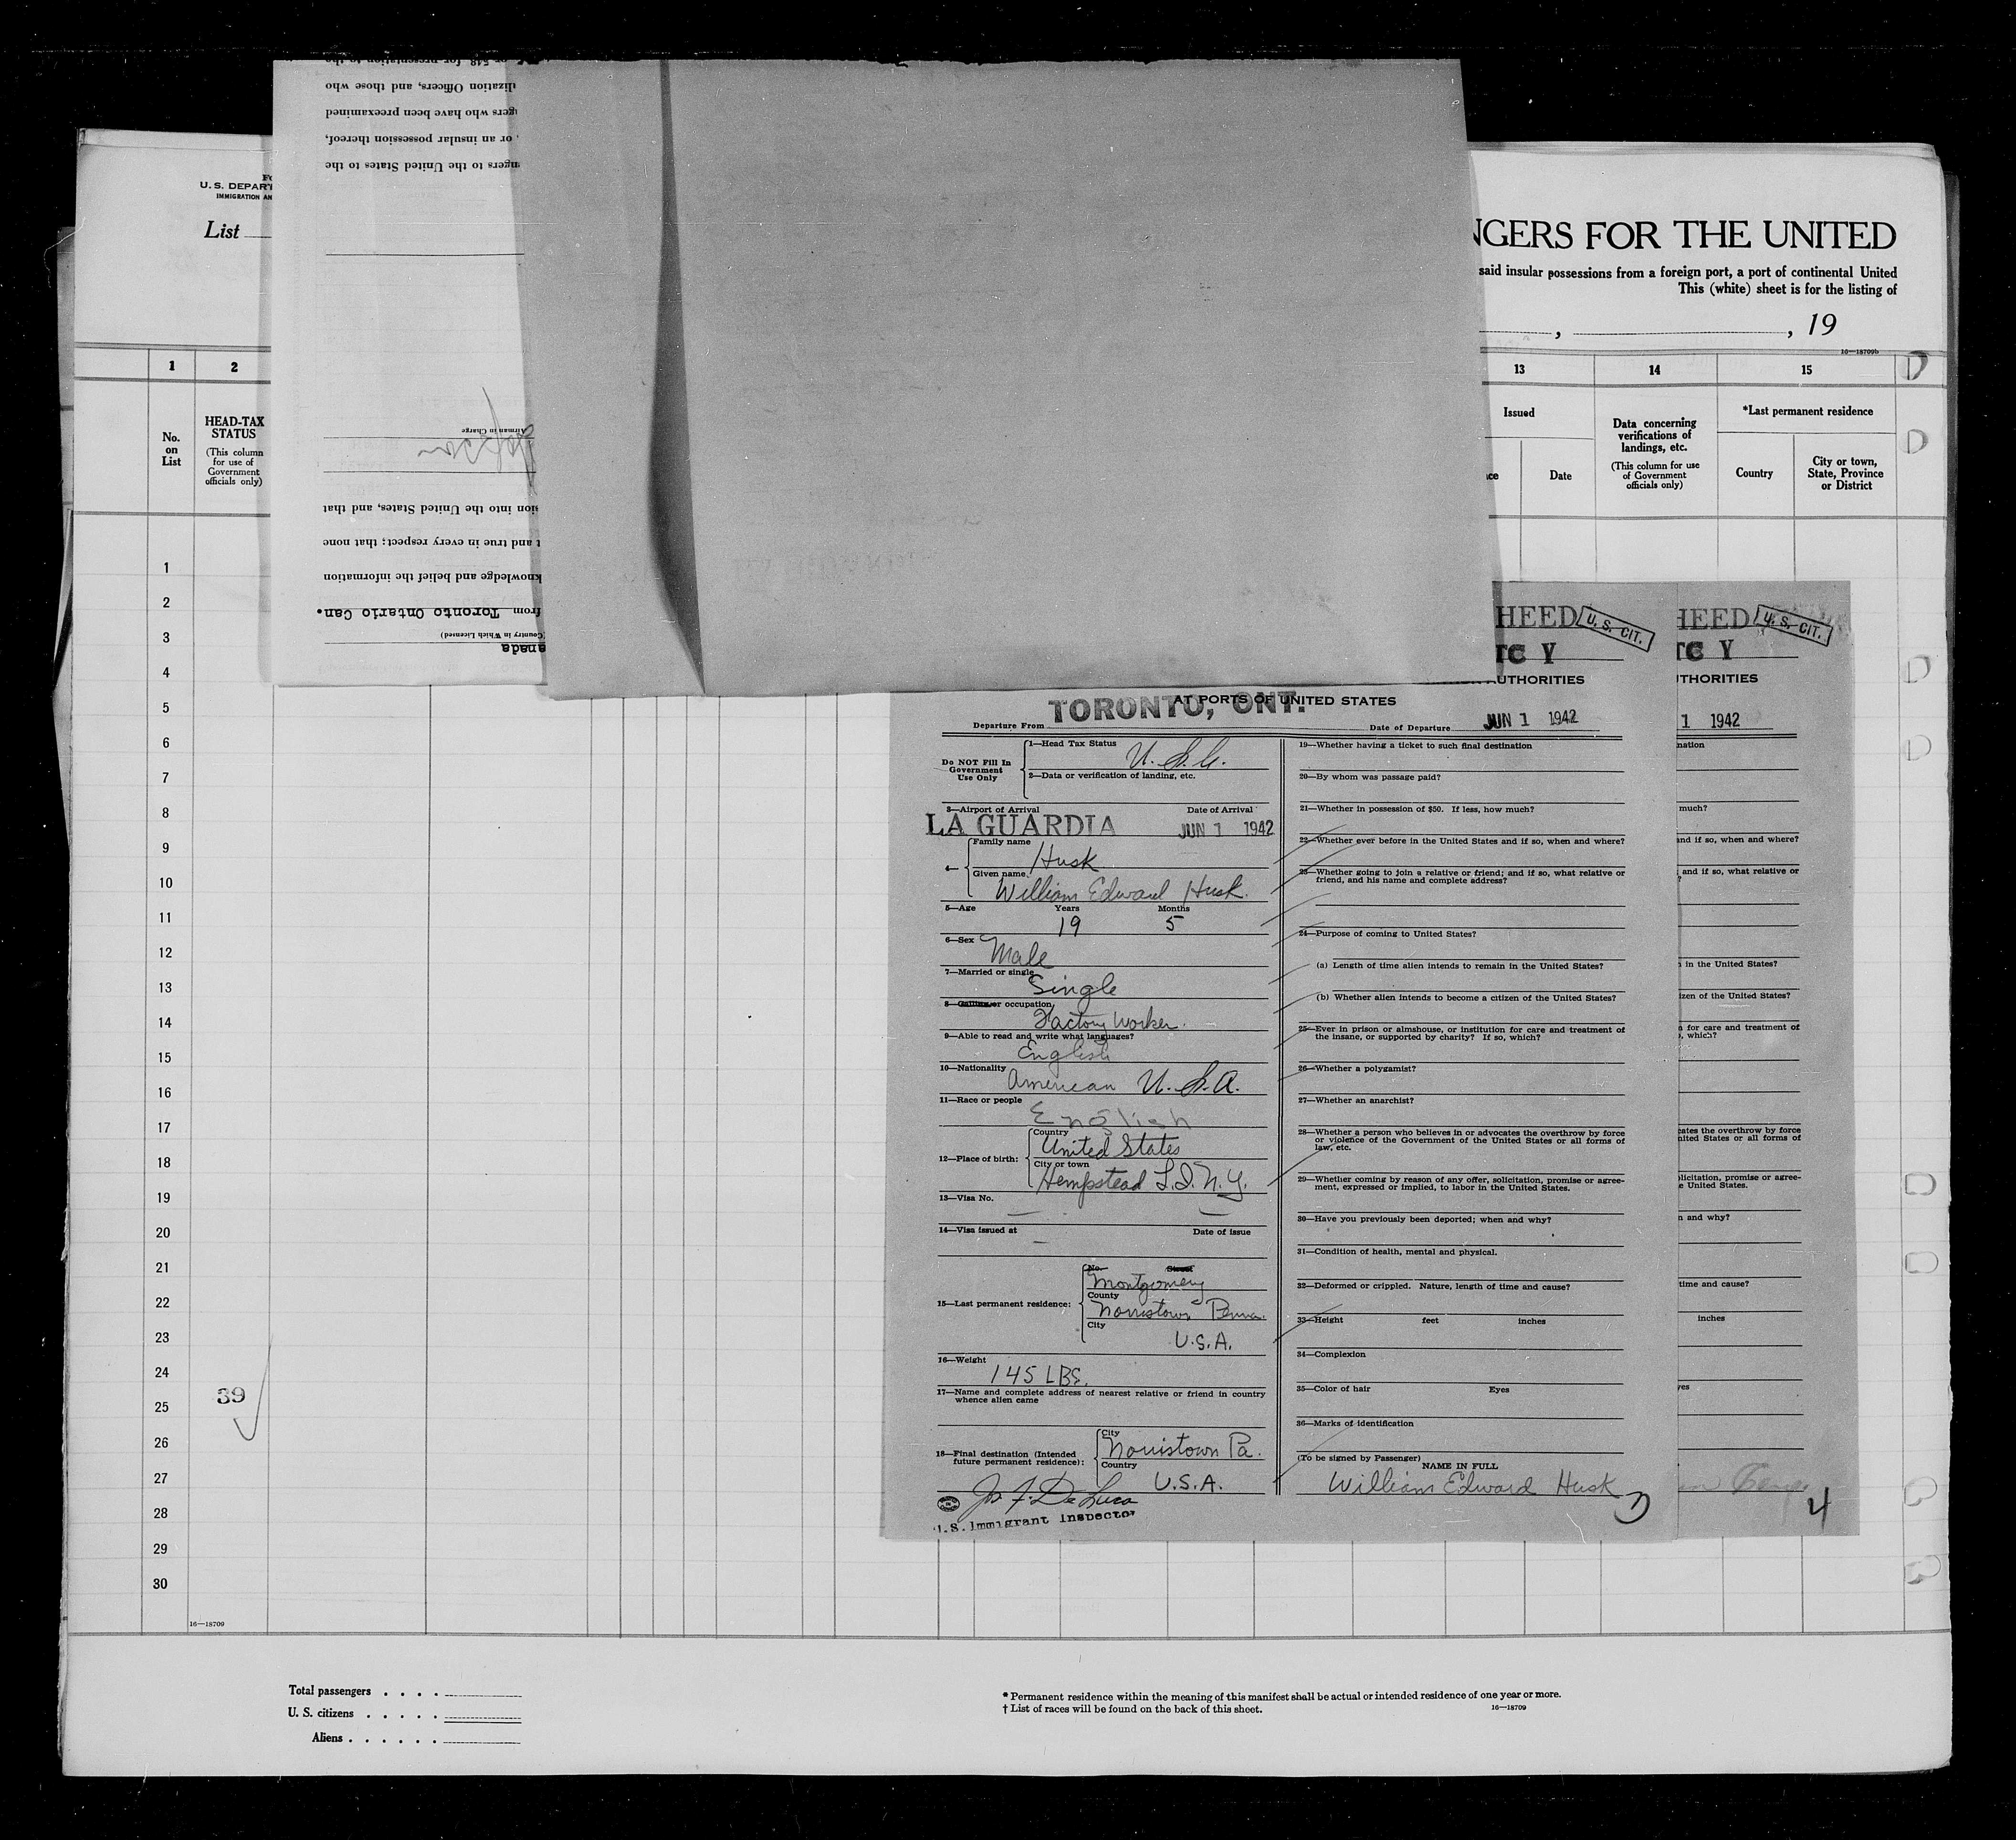 U.S. DEPART
IMMIGRATION AN
List
NGERS FOR THE UNITED
said insular possessions from a foreign port, a port of continental United
This (white) sheet is for the listing of
, , 19
16—18709b
1 2 13 14 15
No.
on
List
HEAD-TAX
STATUS
(This column
for use of
Government
officials only)
Issued
Date
Data concerning
verifications of
landings, etc.
(This column for use
of Government
officials only)
*Last permanent residence
Country
City or town,
State, Province
or District
1
2
3
4
5
6
7
8
9
10
11
12
13
14
15
16
17
18
19
20
21
22
23
24
25
26
27
28
29
30
39
16—18709
anada
(Country in Which Licensed)
from Toronto Ontario Can.
knowledge and belief the information
t and true in every respect; that none
sion into the United States, and that
Airman in Charge
ngers to the United States to the
, or an insular possession thereof,
gers who have been preexamined
ilization Officers, and those who
or 548 for presentation to the
HEED
U. S. CIT.
TC Y
AUTHORITIES
AT PORTS OF UNITED STATES
Departure From TORONTO, ONT.
Date of Departure JUN 1 1942
Do NOT Fill In
Government
Use Only
1—Head Tax Status U.S.C.
2—Data or verification of landing, etc.
3—Airport of Arrival Date of Arrival
LA GUARDIA JUN 1 1942
4—
Family name
Husk
Given name
William Edward Husk.
5—Age Years Months
19 5
6—Sex Male
7—Married or single
Single
8—Calling or occupation
Factory Worker.
9—Able to read and write what languages?
English
10—Nationality
American U.S.A.
11—Race or people
English
12—Place of birth:
Country
United States
City or town
Hempstead L.I. N.Y.
13—Visa No.
—
—
14—Visa issued at Date of issue
—
15—Last permanent residence:
No. Street
Montgomery
County
Norristown Penna.
City
U.S.A.
16—Weight
145 LBS.
17—Name and complete address of nearest relative or friend in country
whence alien came
18—Final destination (Intended
future permanent residence):
City
Norristown Pa.
Country
U.S.A.
Jos F. De Luca
U.S. Immigrant Inspector
19—Whether having a ticket to such final destination
20—By whom was passage paid?
21—Whether in possession of $50. If less, how much?
22—Whether ever before in the United States and if so, when and where?
23—Whether going to join a relative or friend; and if so, what relative or
friend, and his name and complete address?
24—Purpose of coming to United States?
(a) Length of time alien intends to remain in the United States?
(b) Whether alien intends to become a citizen of the United States?
25—Ever in prison or almshouse, or institution for care and treatment of
the insane, or supported by charity? If so, which?
26—Whether a polygamist?
27—Whether an anarchist?
28—Whether a person who believes in or advocates the overthrow by force
or violence of the Government of the United States or all forms of
law, etc.
29—Whether coming by reason of any offer, solicitation, promise or agree-
ment, expressed or implied, to labor in the United States.
30—Have you previously been deported; when and why?
31—Condition of health, mental and physical.
32—Deformed or crippled. Nature, length of time and cause?
33—Height feet inches
34—Complexion
35—Color of hair Eyes
36—Marks of identification
(To be signed by Passenger)
NAME IN FULL
William Edward Husk
3
HEED
U. S. CIT.
TC Y
UTHORITIES
1 1942
nation
much?
and if so, when and where?
and if so, what relative or
?
in the United States?
izen of the United States?
for care and treatment of
, which?
cates the overthrow by force
nited States or all forms of
licitation, promise or agree-
e United States.
n and why?
time and cause?
inches
yes
4
Total passengers . . . .
U. S. citizens . . . . .
Aliens . . . . . .
* Permanent residence within the meaning of this manifest shall be actual or intended residence of one year or more.
† List of races will be found on the back of this sheet.
16—18709